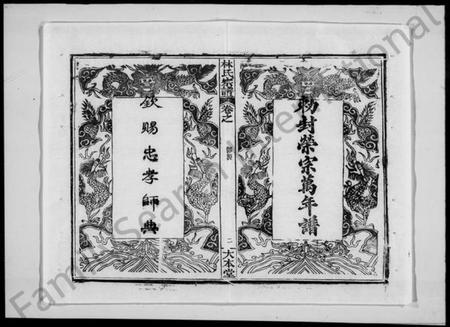 勅封榮宗萬年譜
林氏宗譜
卷之
二
大本堂
欽賜忠孝師典
FamilySearch International